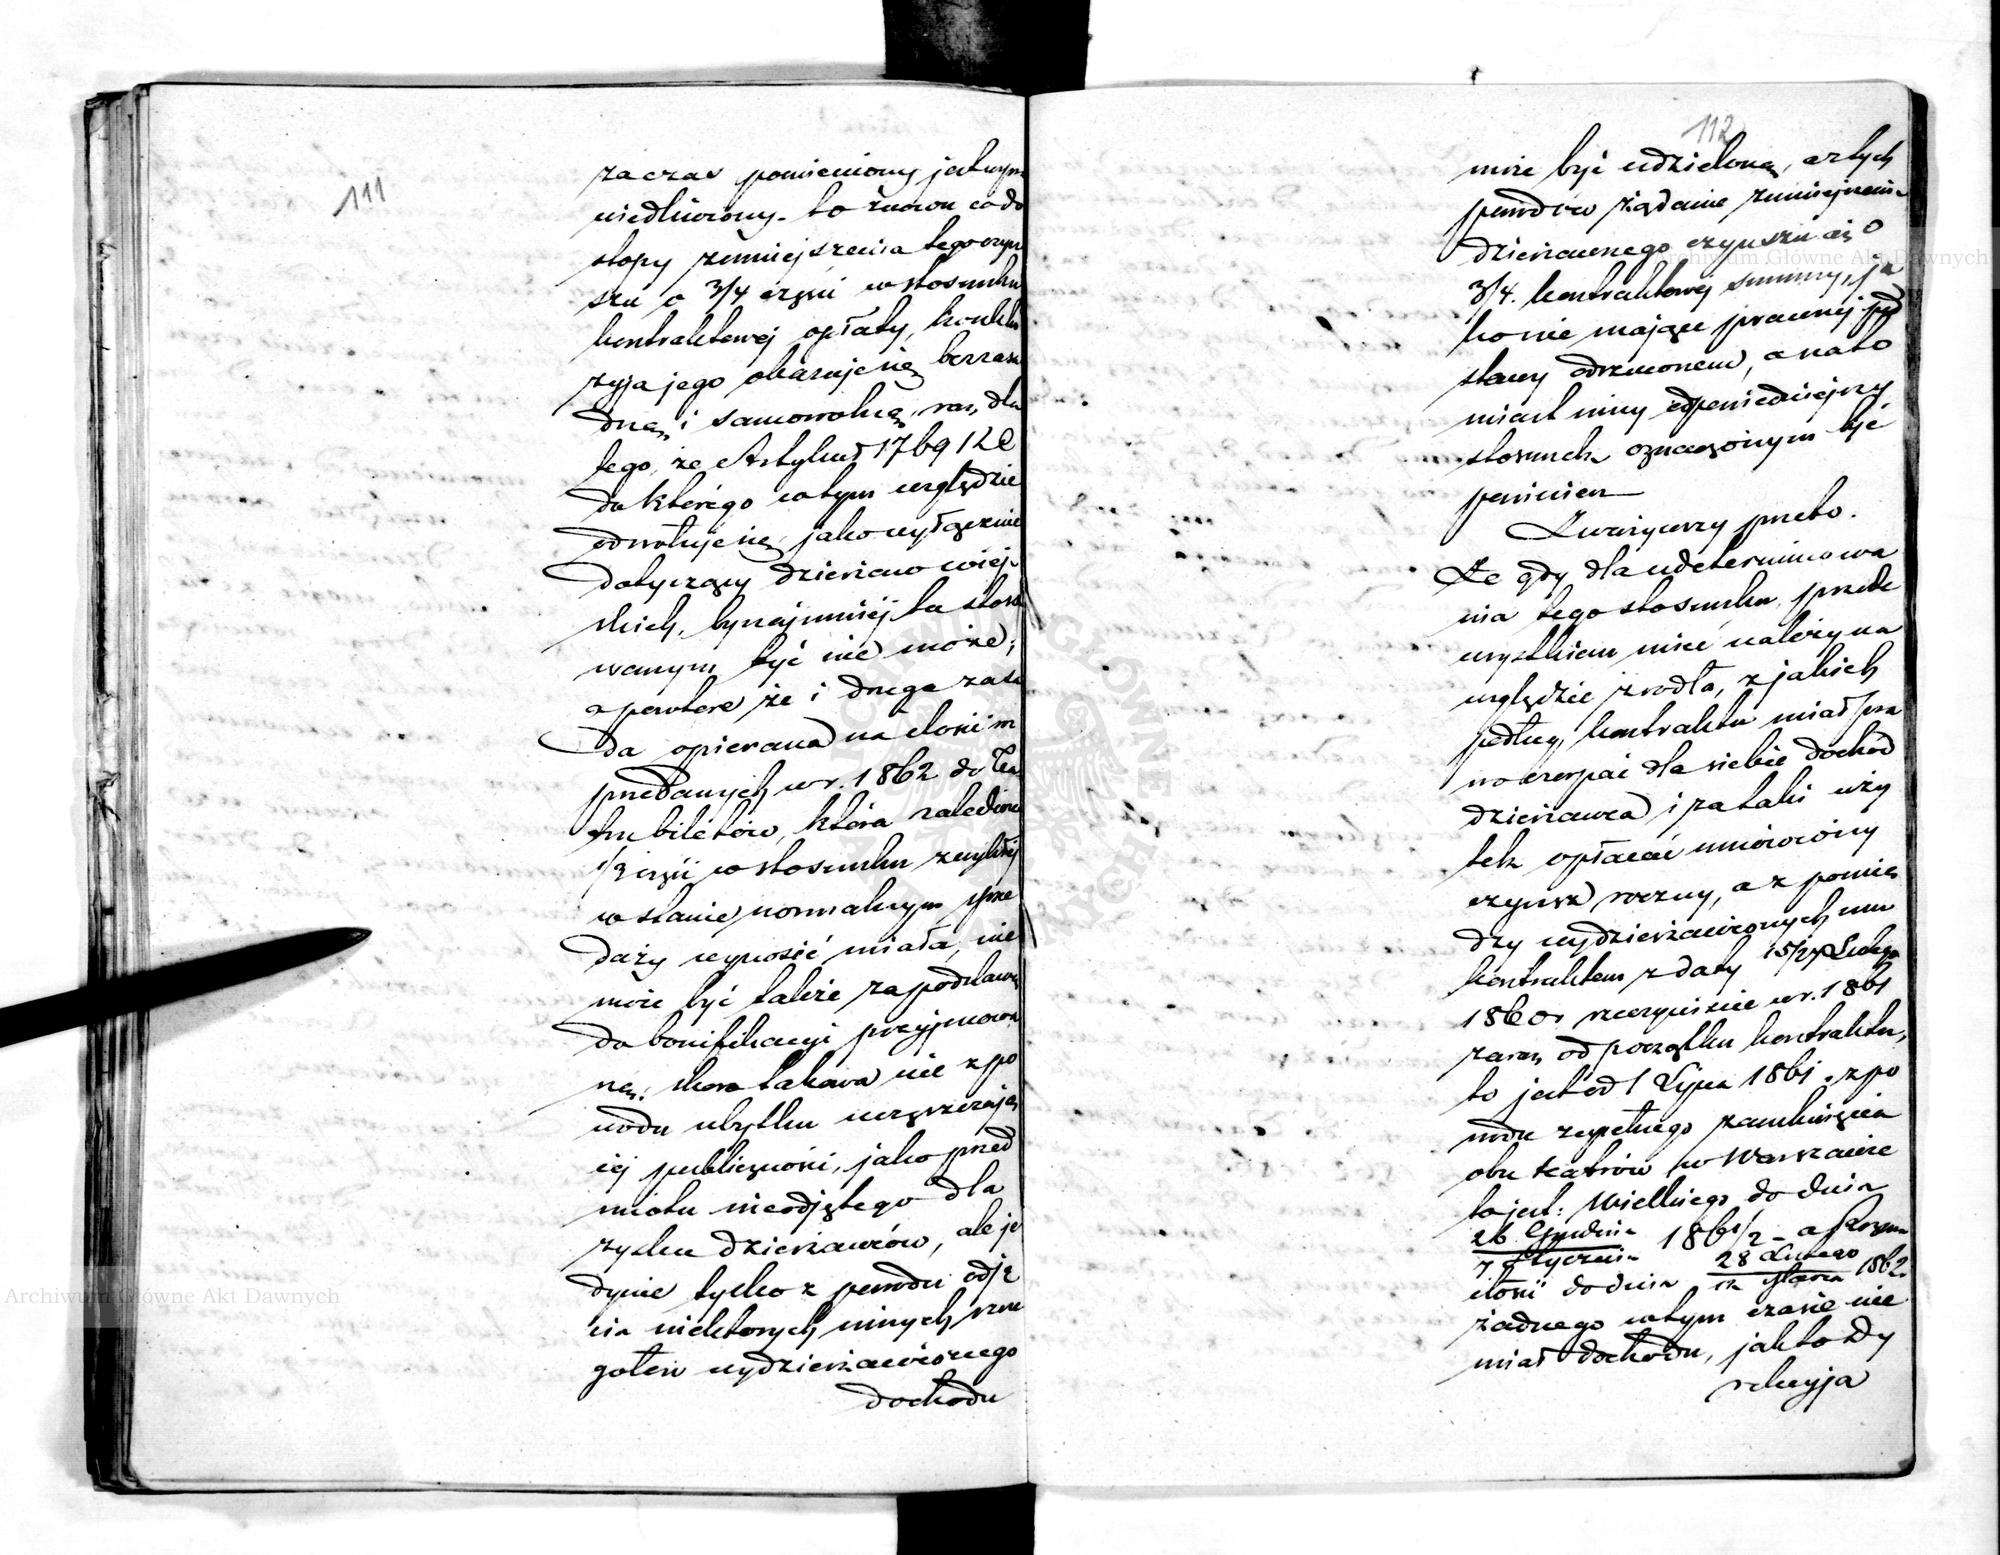 111
za czas pomieniony jest wym
niedłużony. to znowu co do
stopy zmniejszenia tego czyn
szu o 3/4 części w stosunku
kontraktowej opłaty, konklu
zyja jego okazuje się bezzasa
dną i samowolną, raz, dla
tego, że Artykuł 1769 K C
do którego w tym względzie
odwołuje się, jako wyłącznie
dotyczący dzierżaw wiej-
skich, bynajmniej tu stoso
wanym być nie może;
a powtóre że i druga zasa
da opierana na ilości
przedanych w r. 1862 do Tea
tru biletów, która zaledwie
1/3 części w stosunku zwykłej
w stanie normalnym sprze
daży wynosić miała, nie
może być także za podstawę
do bonifikacyi przyjmowa
ną, skoro takowa nie z po
wodu ubytku uczęszczają
cej publiczności, jako przed
miotu nieodjętego dla
zysku dzierżawców, ale je
dynie tylko z powodu odję
cia niektórych innych szcze
gółów wydzierżawionego
dochodu
112
może być udzieloną, a z tych
powodów żądanie zmniejszenia
dzierżawnego czynszu aż o
3/4. kontraktowej summy, ja
ko nie mające prawnej pod
stawy odrzuconem, a nato
miast inny odpowiedniejszy
stosunek oznaczonym być
powinien
Zważywszy przeto.
Że gdy dla udeterminowa
nia tego stosunku, przede
wszystkiem mieć należy na
względzie źródła, z jakich
podług kontraktu miał pra
wo czerpać dla siebie dochód
dzierżawca i za taki uży
tek opłacać umówiony
czynsz roczny, a z pomię
dzy wydzierżawionych mu
kontraktem z daty 15/27 Lutego
1860r rzeczywiście w r. 1861
zaraz od początku kontraktu,
to jest od 1 Lipca 1861. z po
wodu zupełnego zamknięcia
obu teatrów w Warszawie
to jest: Wielkiego do dnia
26 Grudnia / 7 Stycznia 1861/2 - a Rozma
itości do dnia 28 Lutego / 12 Marca 1862.
żadnego w tym czasie nie
miał dochodu, jak to Dy
rekcyja